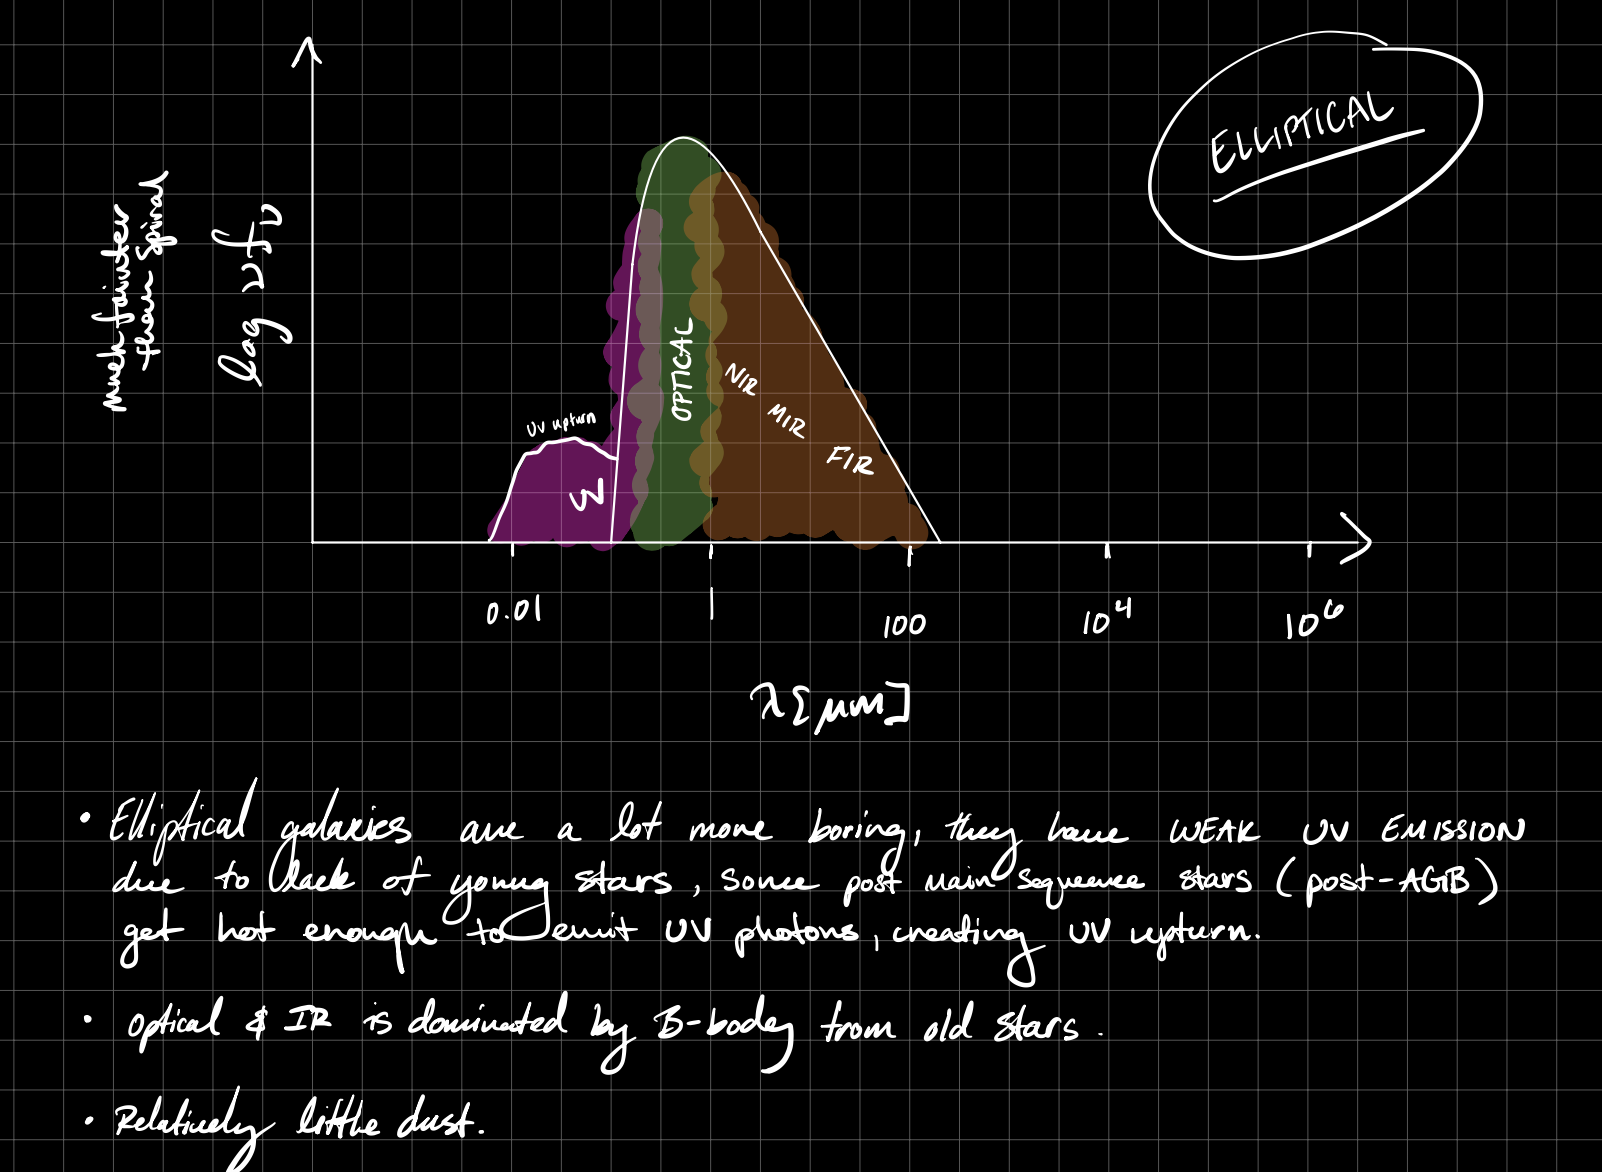 ELLIPTICAL
much fainter
than spiral
log νfν
UV upturn
UV
OPTICAL
NIR
MIR
FIR
0.01
1
100
10⁴
10⁶
λ[μm]
• Elliptical galaxies are a lot more boring, they have WEAK UV EMISSION
due to lack of young stars, some post main sequence stars (post-AGB)
get hot enough to emit UV photons, creating UV upturn.
• Optical & IR is dominated by B-body from old stars.
• Relatively little dust.